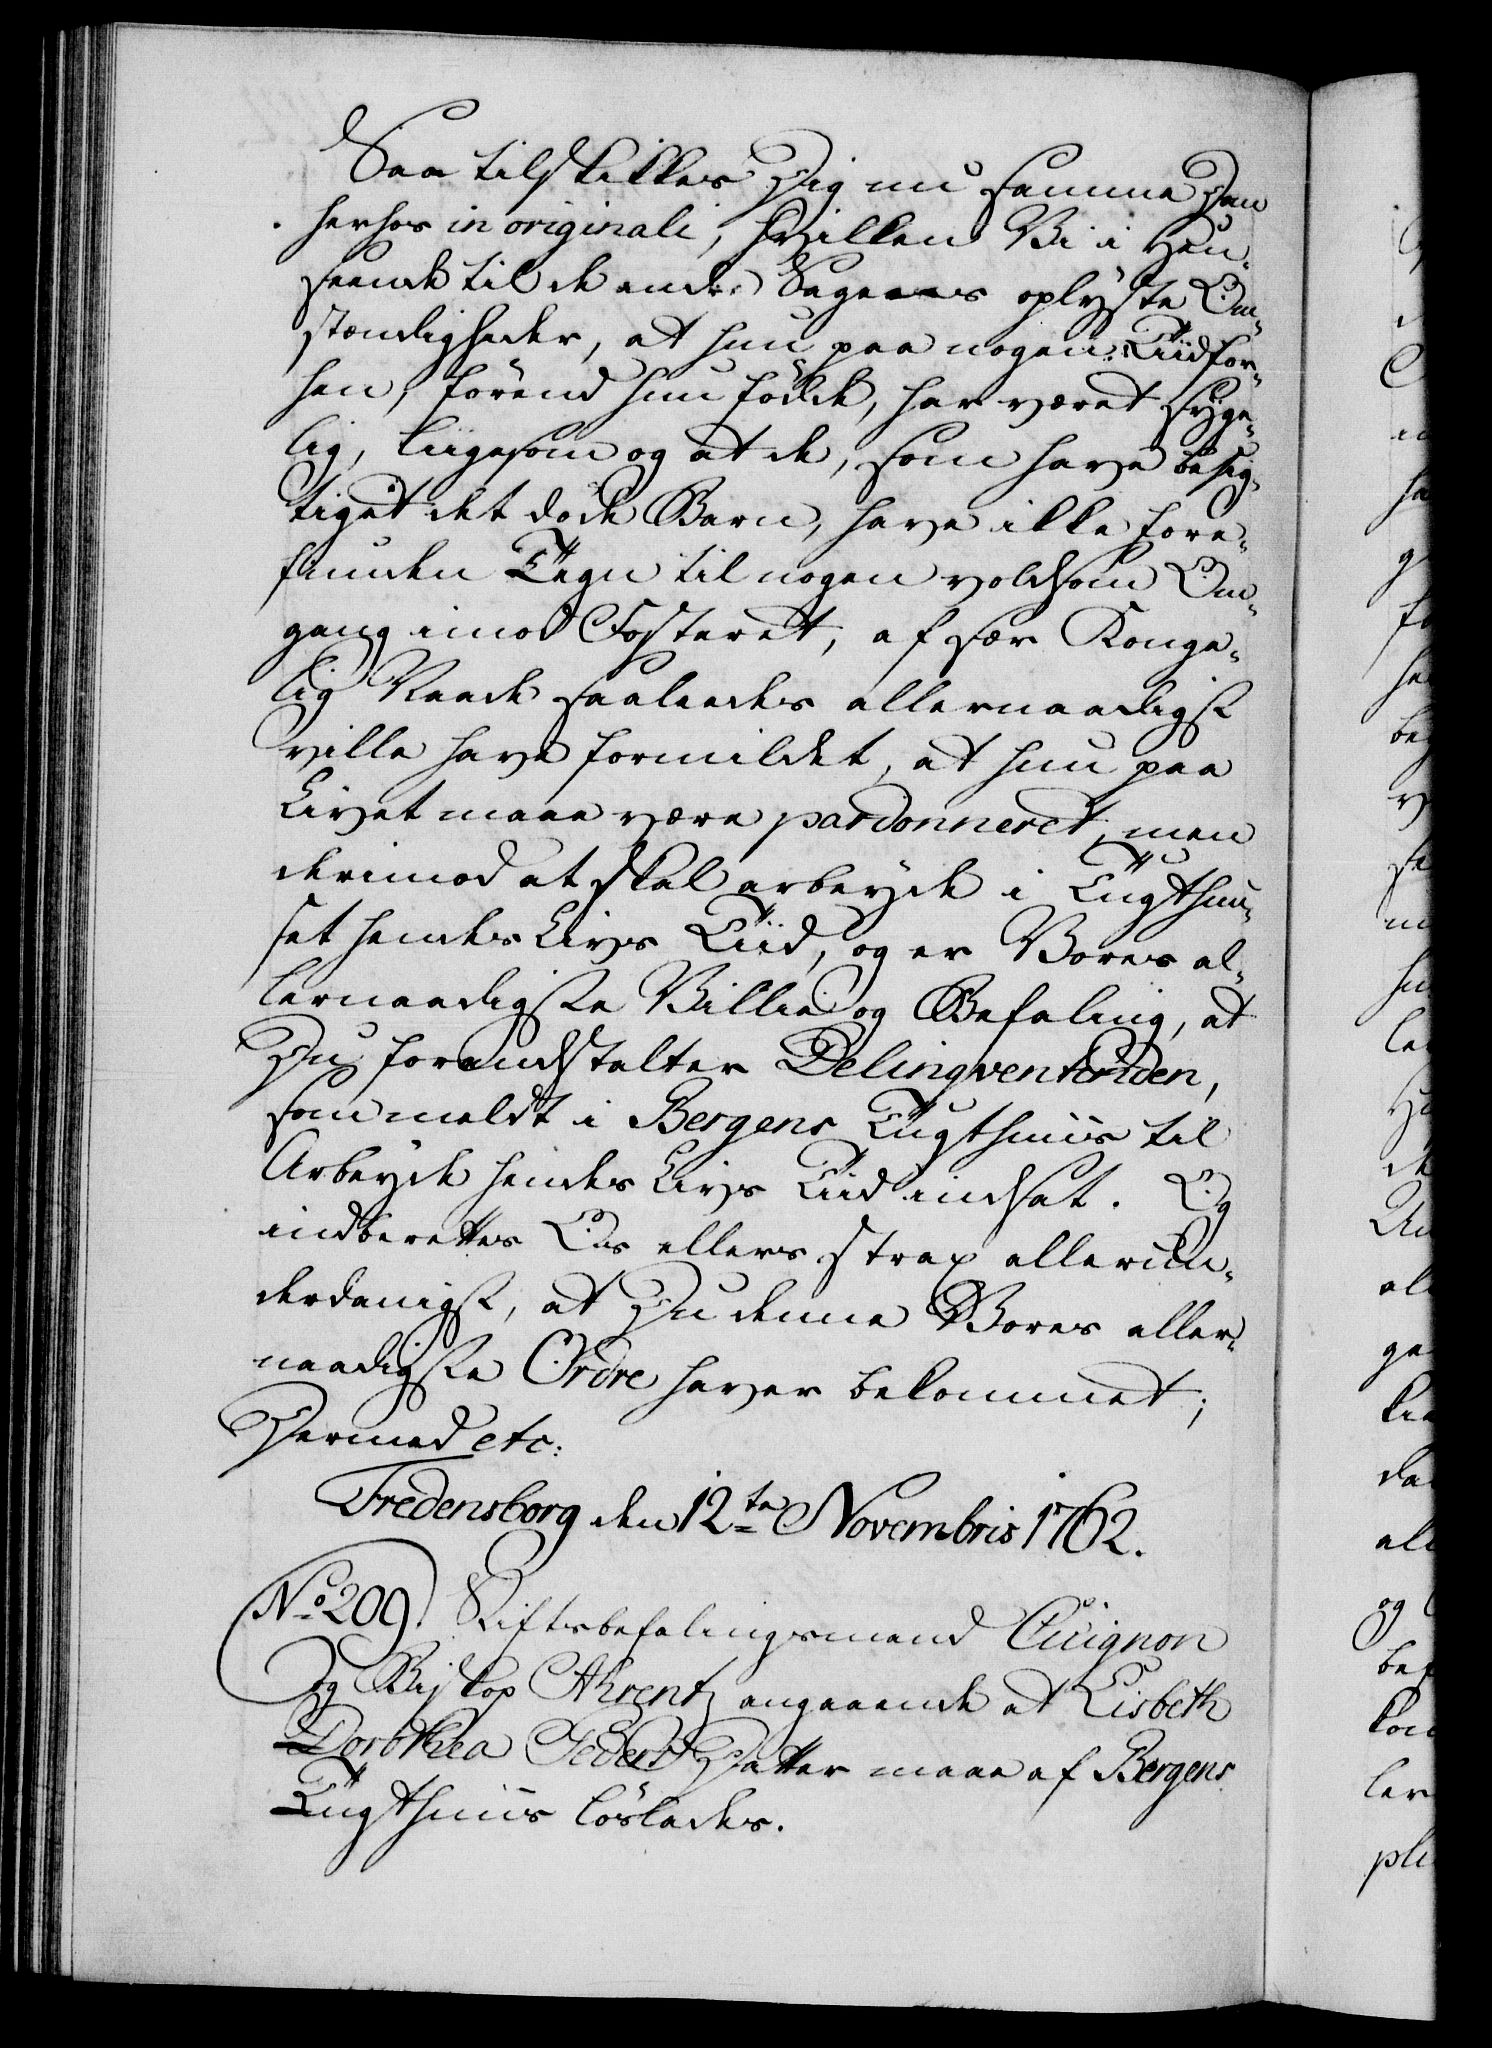 Saa tilskikkes Dig nu samme Dom
herhos in originali, hvilken Vi i Hen-
seende til de ende Sagens oplyste Om-
stændigheder, at hun paa nogen Tiid for-
hen, førend hun fødde, har været syge-
lig, liigesom og at de, som have besig-
tiget det døde Barn, have ikke fore-
funden Tegn til nogen voldsom Om-
gang imod Fosteret, af sær Konge-
lig Naade saaledes allernaadigst
ville have formildet, at hun paa
Livet maae være pardonneret, men
derimod at skal arbeyde i Tugthuu-
set hendes Livs Tiid, og er Vores al-
lernaadigste Villie og Befaling, at
Du foranstalter Delinqventinden,
som meldt i Bergens Tugthuus til
Arbeyde hendes Livs Tiid indsat. Og
indberettes Os ellers strax allerun-
derdanigst, at Du denne Vores aller-
naadigste Ordre haver bekommet;
Dermed etc:
Fredensborg den 12te Novembris 1762.
No 209. Stiftsbefalingsmand Cicignon
og Biskop Ahrentz angaaende at Lisbeth
Dorothea Peders Datter maae af Bergens
Tugthuus løslades.